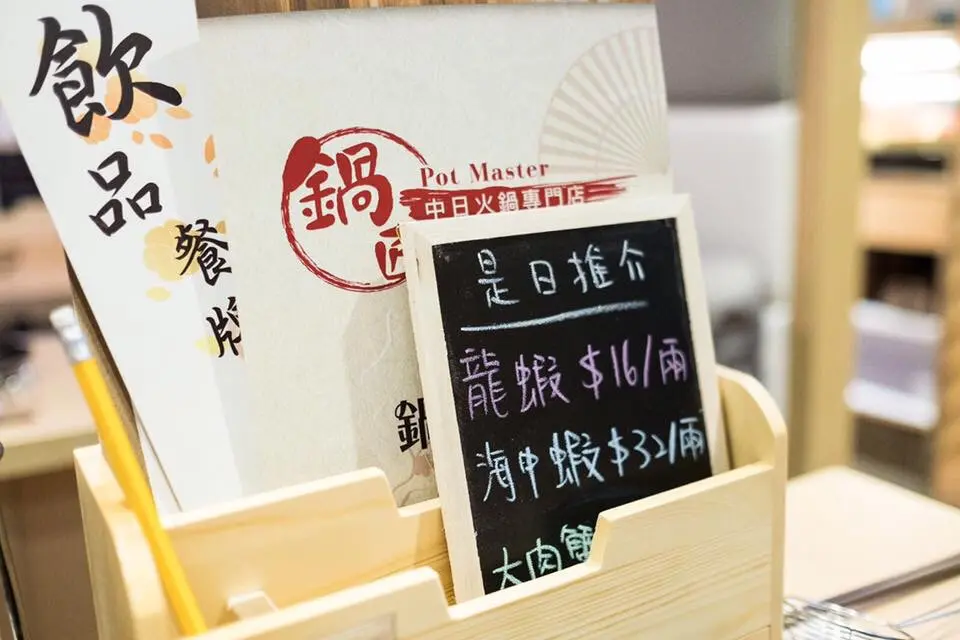 飲品
餐牌
鍋
Pot Master
中日火鍋專門店
鍋
是日推介
龍蝦 $16/兩
海中蝦 $32/兩
大肉